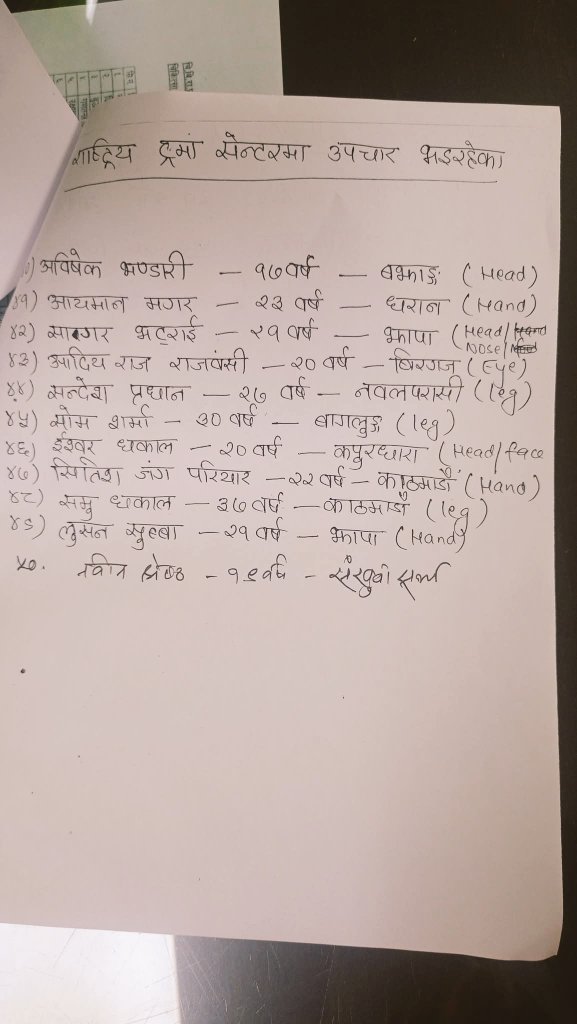 राष्ट्रिय ट्रमां सेन्टरमा उपचार भइरहेका
०) अविषेक भण्डारी – १७ वर्ष – बझाङ्ग (Head)
४१) आयमान मगर – २३ वर्ष – धरान (Hand)
४२) सागर भट्टराई – २१ वर्ष – झापा (Head/
Nose/
४३) आदिय राज राजवंसी – २० वर्ष – बिरगज (Eye)
४४) सन्देश प्रधान – २७ वर्ष – नवलपरासी (leg)
४५) सोम शर्मा – ३० वर्ष – बागलुङ्ग (leg)
४६) ईश्वर धकाल – २० वर्ष – कपुरधारा (Head/face
४७) सितिश जंग परियार – २२ वर्ष – काठमाडौं (Hand)
४८) समु धकाल – ३७ वर्ष – काठमाडौं (leg)
४९) लुसन सुहबा – २१ वर्ष – झापा (Hand)
५०. श्रेष्ठ – १९ वर्ष –